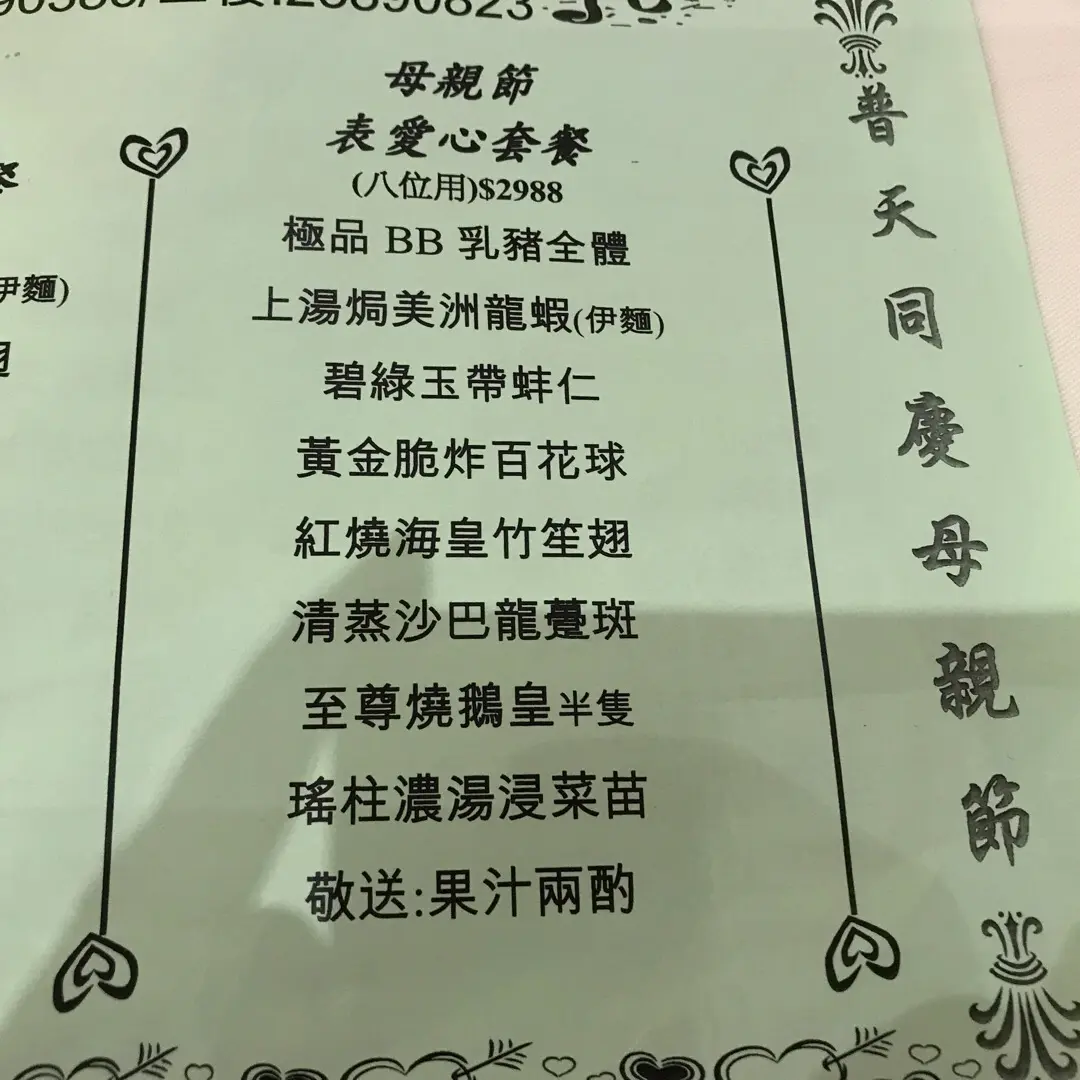 母親節
表愛心套餐
(八位用)$2988
極品 BB 乳豬全體
上湯焗美洲龍蝦(伊麵)
碧綠玉帶蚌仁
黃金脆炸百花球
紅燒海皇竹笙翅
清蒸沙巴龍躉斑
至尊燒鵝皇半隻
瑤柱濃湯浸菜苗
敬送:果汁兩酌
普天同慶母親節
伊麵)